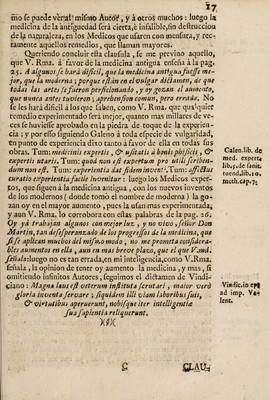 17
mo se puede vèr al mismo Autor, y à otros muchos: luego la
medicina de la antiguedad serà cierta, è infalible, sin destruccion
de la naturaleza, en los Medicos que usaren con mensura, y rec-
tamente aquellos remedios, que llaman mayores.
Queriendo concluir esta clausula, se me previno aquello,
que V. Rma. à favor de la medicina antigua enseña à la pag.
25. A algunos se harà dificil, que la medicina antigua fuesse me-
jor, que la moderna; porque estàn en el vulgar dictamen, de que
todas las artes se fueron perficionando, y oy gozan el aumento,
que nunca antes tuvieron; aprehension comun, pero errada. No
se les harà dificil à los que saben, como V. Rma. que qualquier
remedio experimentado serà mejor, quanto mas millares de ve-
ces se huviesse aprobado en la piedra de toque de la experien-
cia; y por esso siguiendo Galeno à toda especie de vulgaridad,
en punto de experiencia dixo tanto à favor de ella en todas sus
obras. Tum: medicinis expertis, & usitatis à bonis phisicis, &
expertis utaris. Tum: quod non est expertum pro utili scriben-
dum non est. Tum: experientia dat fidem invent. Tum: officius
curatio experientia fuit inventa: luego los Medicos exper-
tos, que siguen à la medicina antigua, con los nuevos inventos
de los modernos (donde tomò el nombre de moderna) la go-
zan oy en el mayor aumento, pues la usan mas experimentada,
y aun V. Rma. lo corrobora con estas palabras de la pag. 26.
Oy yà trabajan algunos con mejor luz, y no vivo, señor Don
Martin, tan desesperanzado de los progressos de la medicina, que
si se aplican muchos del mismo modo, no me prometa considera-
bles aumentos en ella, aun en mas breve plazo, que el que V.md.
señala: luego no es tan errada, en mi inteligencia, como V. Rma.
señala, la opinion de tener oy aumento la medicina, y mas, si
omitiendo infinitos Autores, seguimos el dictamen de Vindi-
ciano: Magna laus est ceterum instituta scrutari, maior verò
gloria inventa servare; siquidem illi viam laboribus suis,
& virtutibus aperuerunt, nobisque iter intelligentiæ
sua sapientia reliquerunt.
Galen. lib. de
med. experta
lib. 1. de sanit.
tuend. lib. 10.
meth. cap. 7;
Vindic. in ep.
ad imp. Va-
lent.
C
CLAU-